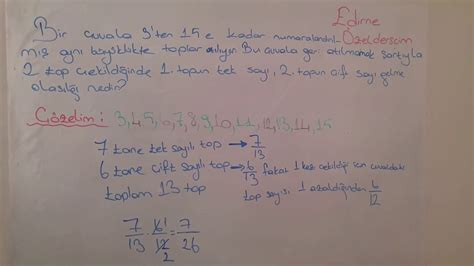 Edirne
Bir çuvala 3'ten 15 e kadar numaralandırıl- Özelderscim
mış aynı büyüklükte toplar atılıyor. Bu çuvala geri atılmamak şartıyla
2 top çekildiğinde 1. topun tek sayı, 2. topun çift sayı gelme
olasılığı nedir?
Çözelim: 3,4,5,6,7,8,9,10,11,12,13,14,15
7 tane tek sayılı top → 7/13
6 tane çift sayılı top → 6/13 fakat 1 kez çekildiği için çuvaldaki
toplam 13 top top sayısı 1 azaldığından 6/12
7/13 . 6 1/12 2 = 7/26